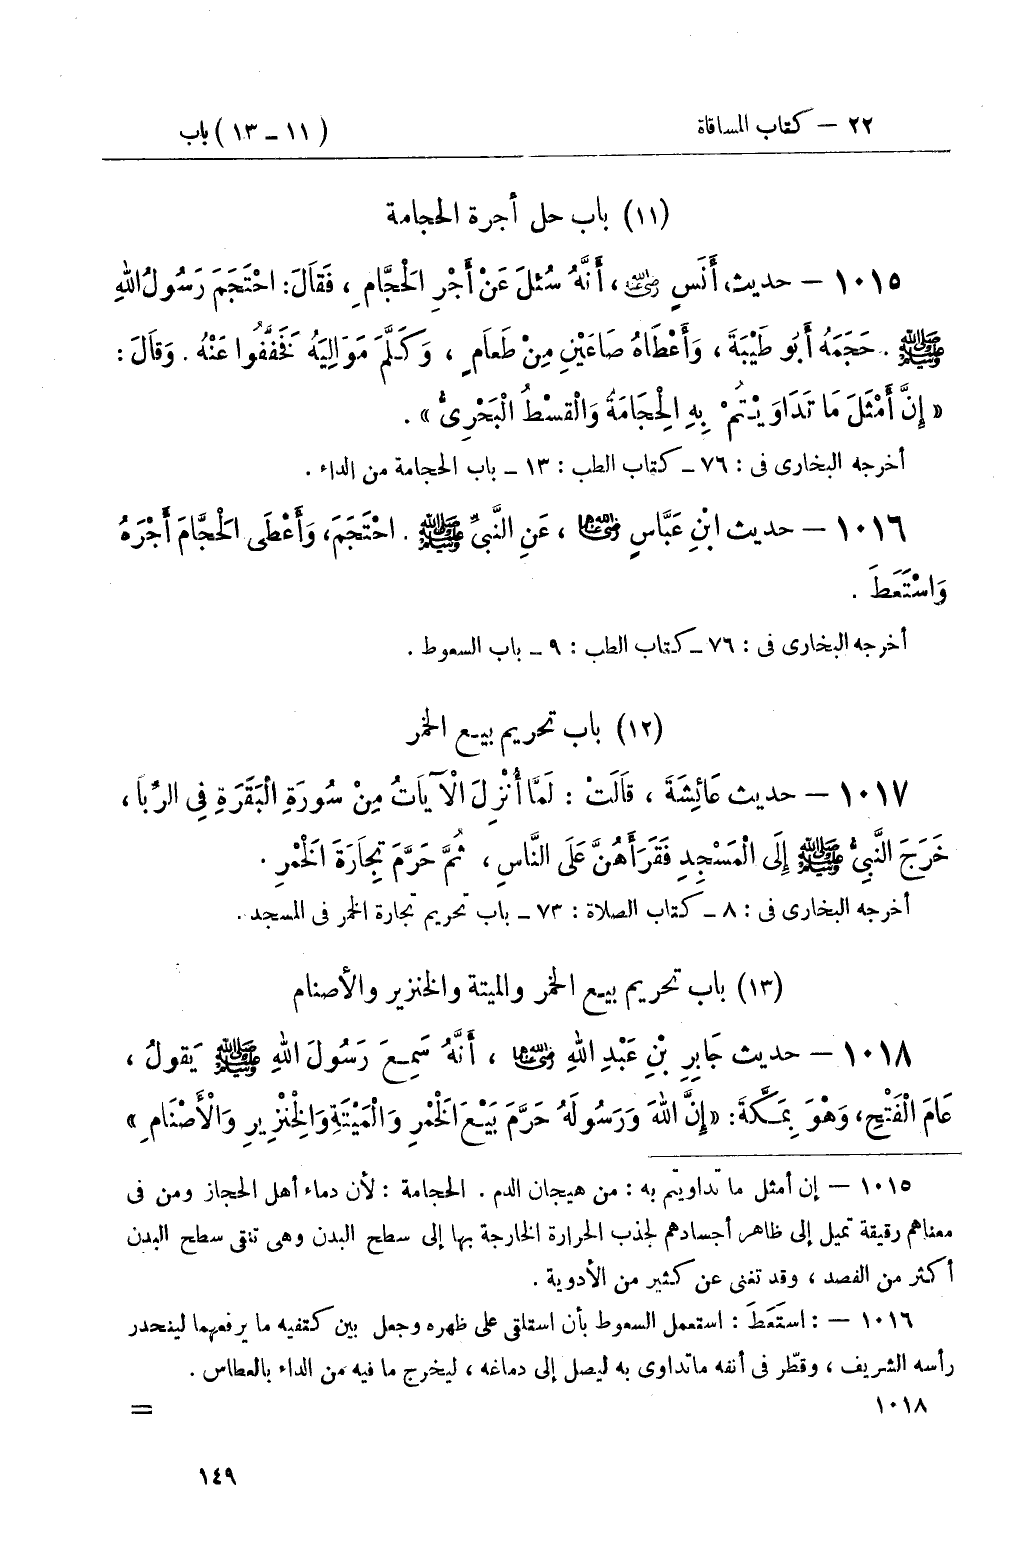 ٢٢ — كتاب المساقاة
(١١ – ١٣) باب
(١١) باب حل أجرة الحجامة
١٠١٥ — حديث أَنَسٍ رضي الله عنه، أَنَّهُ سُئِلَ عَنْ أَجْرِ الْحَجَّامِ، فَقَالَ: احْتَجَمَ رَسُولُ اللهِ
ﷺ. حَجَمَهُ أَبُو طَيْبَةَ، وَأَعْطَاهُ صَاعَيْنِ مِنْ طَعَامٍ، وَكَلَّمَ مَوَالِيَهُ فَخَفَّفُوا عَنْهُ. وَقَالَ:
« إِنَّ أَمْثَلَ مَا تَدَاوَيْتُمْ بِهِ الْحِجَامَةُ وَالْقُسْطُ الْبَحْرِىُّ ».
أخرجه البخارى فى : ٧٦ – كتاب الطب : ١٣ – باب الحجامة من الداء .
١٠١٦ — حديث ابْنِ عَبَّاسٍ رضي الله عنهما، عَنِ النَّبِىِّ ﷺ. احْتَجَمَ، وَأَعْطَى الْحَجَّامَ أَجْرَهُ
وَاسْتَعَطَ .
أخرجه البخارى فى : ٧٦ – كتاب الطب : ٩ – باب السعوط .
(١٢) باب تحريم بيع الخمر
١٠١٧ — حديث عَائِشَةَ، قَالَتْ : لَمَّا أُنْزِلَ الْآيَاتُ مِنْ سُورَةِ الْبَقَرَةِ فِى الرِّبَا،
خَرَجَ النَّبِىُّ ﷺ إِلَى الْمَسْجِدِ فَقَرَأَهُنَّ عَلَى النَّاسِ، ثُمَّ حَرَّمَ تِجَارَةَ الْخَمْرِ .
أخرجه البخارى فى : ٨ – كتاب الصلاة : ٧٣ – باب تحريم تجارة الخمر فى المسجد .
(١٣) باب تحريم بيع الخمر والميتة والخنزير والأصنام
١٠١٨ — حديث جَابِرِ بْنِ عَبْدِ اللهِ رضي الله عنهما، أَنَّهُ سَمِعَ رَسُولَ اللهِ ﷺ يَقُولُ،
عَامَ الْفَتْحِ، وَهُوَ بِمَكَّةَ: « إِنَّ اللهَ وَرَسُولَهُ حَرَّمَ بَيْعَ الْخَمْرِ وَالْمَيْتَةِ وَالْخِنْزِيرِ وَالْأَصْنَامِ »
١٠١٥ — إن أمثل ما تداويتم به : من هيجان الدم . الحجامة : لأن دماء أهل الحجاز ومن فى
معناهم رقيقة تميل إلى ظاهر أجسادهم لجذب الحرارة الخارجة بها إلى سطح البدن وهى تنقى سطح البدن
أكثر من الفصد ، وقد تغنى عن كثير من الأدوية .
١٠١٦ — : استَعَطَ : استعمل السعوط بأن استلقى على ظهره وجعل بين كتفيه ما يرفعهما لينحدر
رأسه الشريف ، وقطّر فى أنفه ماتداوى به ليصل إلى دماغه ، ليخرج ما فيه من الداء بالعطاس .
١٠١٨ =
١٤٩